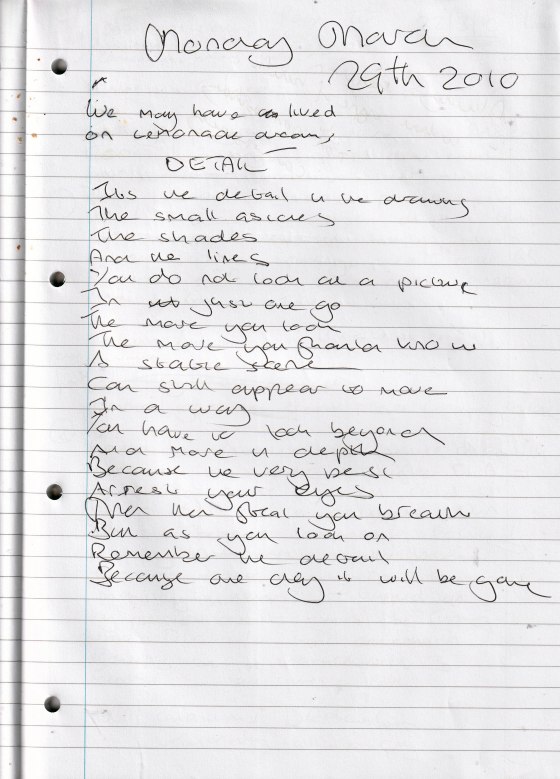 Monday March
29th 2010
We may have lived
on lemonade dreams
DETAIL
Its the detail in the drawing
The small asides
The shades
And the lines
You do not look at a picture
In just one go
The more you look
The more you should know
A static scene
Can still appear to move
In a way
You have to look beyond
And more in depth
Because the very best
Arrest your eyes
Then steal your breath
But as you look on
Remember the detail
Because one day it will be gone